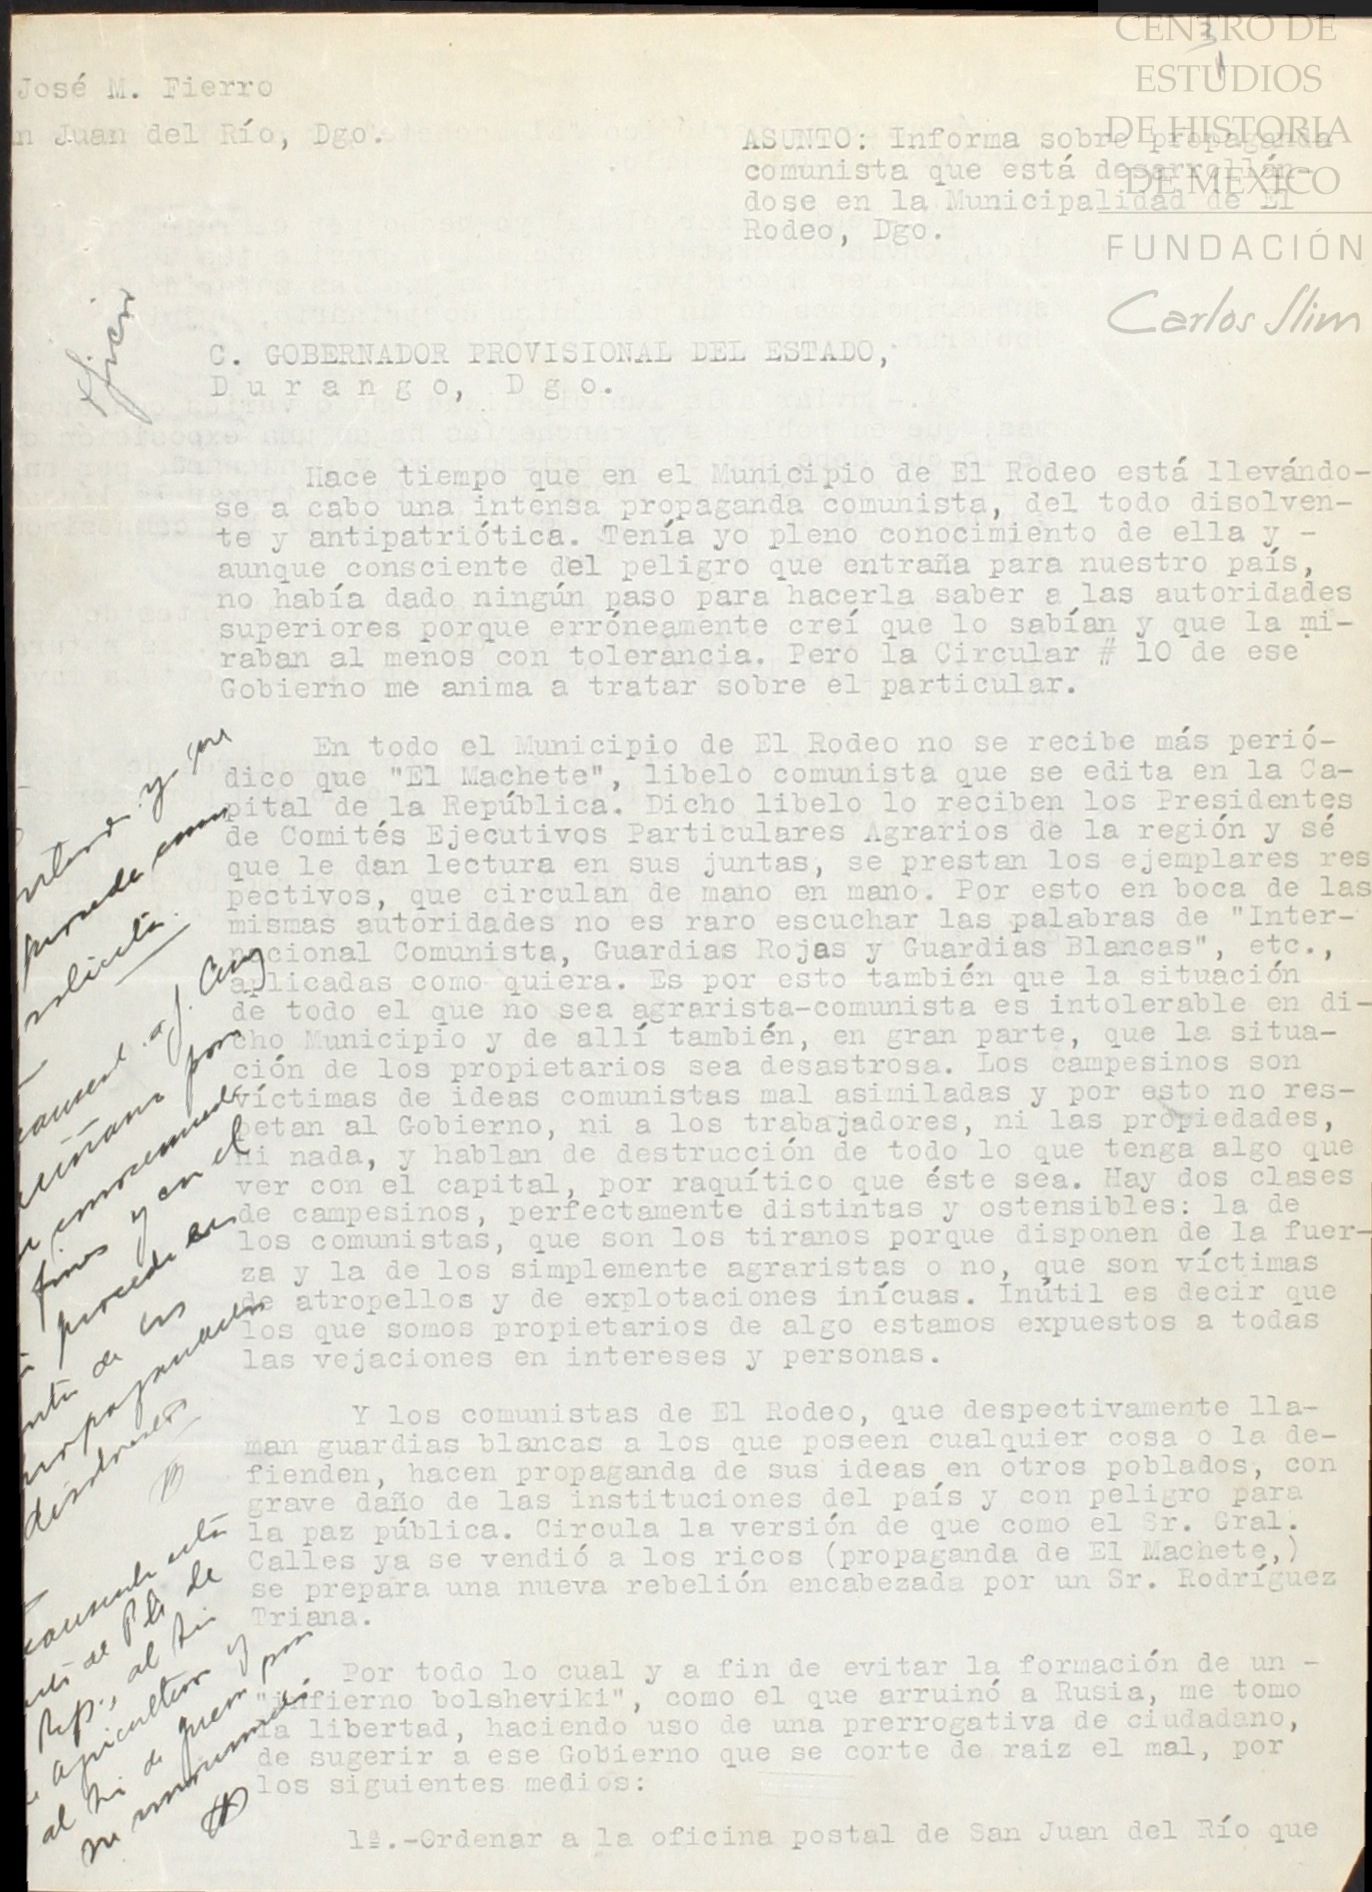 3
1
CENTRO DE
ESTUDIOS
DE HISTORIA
DE MÉXICO
FUNDACIÓN
Carlos Slim
José M. Fierro
n Juan del Río, Dgo.
ASUNTO: Informa sobre propaganda
comunista que está desarrollán-
dose en la Municipalidad de El
Rodeo, Dgo.
C. GOBERNADOR PROVISIONAL DEL ESTADO,
D u r a n g o, D g o.
Hace tiempo que en el Municipio de El Rodeo está llevándo-
se a cabo una intensa propaganda comunista, del todo disolven-
te y antipatriótica. Tenía yo pleno conocimiento de ella y -
aunque consciente del peligro que entraña para nuestro país,
no había dado ningún paso para hacerla saber a las autoridades
superiores porque erróneamente creí que lo sabían y que la mi-
raban al menos con tolerancia. Pero la Circular # 10 de ese
Gobierno me anima a tratar sobre el particular.
En todo el Municipio de El Rodeo no se recibe más perió-
dico que "El Machete", libelo comunista que se edita en la Ca-
pital de la República. Dicho libelo lo reciben los Presidentes
de Comités Ejecutivos Particulares Agrarios de la región y sé
que le dan lectura en sus juntas, se prestan los ejemplares res
pectivos, que circulan de mano en mano. Por esto en boca de las
mismas autoridades no es raro escuchar las palabras de "Inter-
nacional Comunista, Guardias Rojas y Guardias Blancas", etc.,
aplicadas como quiera. Es por esto también que la situación
de todo el que no sea agrarista-comunista es intolerable en di-
cho Municipio y de allí también, en gran parte, que la situa-
ción de los propietarios sea desastrosa. Los campesinos son
víctimas de ideas comunistas mal asimiladas y por esto no res-
petan al Gobierno, ni a los trabajadores, ni las propiedades,
ni nada, y hablan de destrucción de todo lo que tenga algo que
ver con el capital, por raquítico que éste sea. Hay dos clases
de campesinos, perfectamente distintas y ostensibles: la de
los comunistas, que son los tiranos porque disponen de la fuer-
za y la de los simplemente agraristas o no, que son víctimas
de atropellos y de explotaciones inícuas. Inútil es decir que
los que somos propietarios de algo estamos expuestos a todas
las vejaciones en intereses y personas.
Y los comunistas de El Rodeo, que despectivamente lla-
man guardias blancas a los que poseen cualquier cosa o la de-
fienden, hacen propaganda de sus ideas en otros poblados, con
grave daño de las instituciones del país y con peligro para
la paz pública. Circula la versión de que como el Sr. Gral.
Calles ya se vendió a los ricos (propaganda de El Machete,)
se prepara una nueva rebelión encabezada por un Sr. Rodríguez
Triana.
Por todo lo cual y a fin de evitar la formación de un -
"infierno bolsheviki", como el que arruinó a Rusia, me tomo
la libertad, haciendo uso de una prerrogativa de ciudadano,
de sugerir a ese Gobierno que se corte de raiz el mal, por
los siguientes medios:
1ª.-Ordenar a la oficina postal de San Juan del Río que
y que
procede como
solicita.
por
conocimiento
fines y en el
procede en
de los
propagandistas
disolventes
de
Rep., al
Agricultura y
al de guerra para
su conocimiento